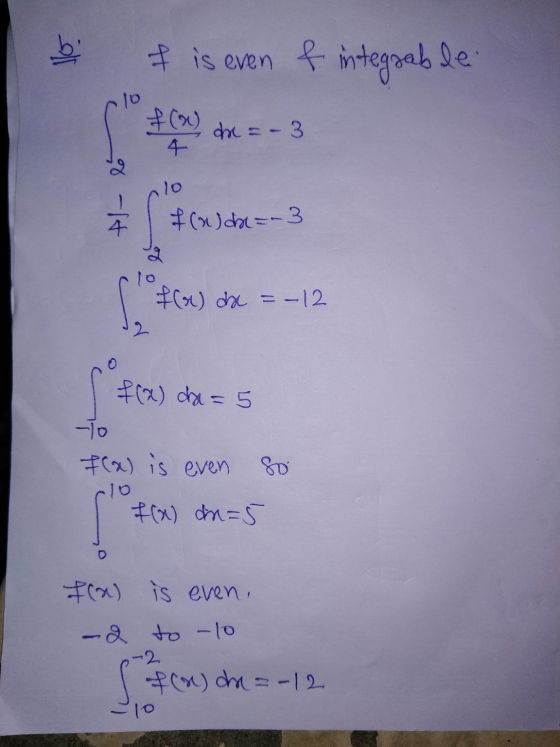 b. f is even & integrable.
∫₂¹⁰ f(x)/4 dx = -3
1/4 ∫₂¹⁰ f(x) dx = -3
∫₂¹⁰ f(x) dx = -12
∫₋₁₀⁰ f(x) dx = 5
f(x) is even so
∫₀¹⁰ f(x) dx = 5
f(x) is even.
-2 to -10
∫₋₁₀⁻² f(x) dx = -12